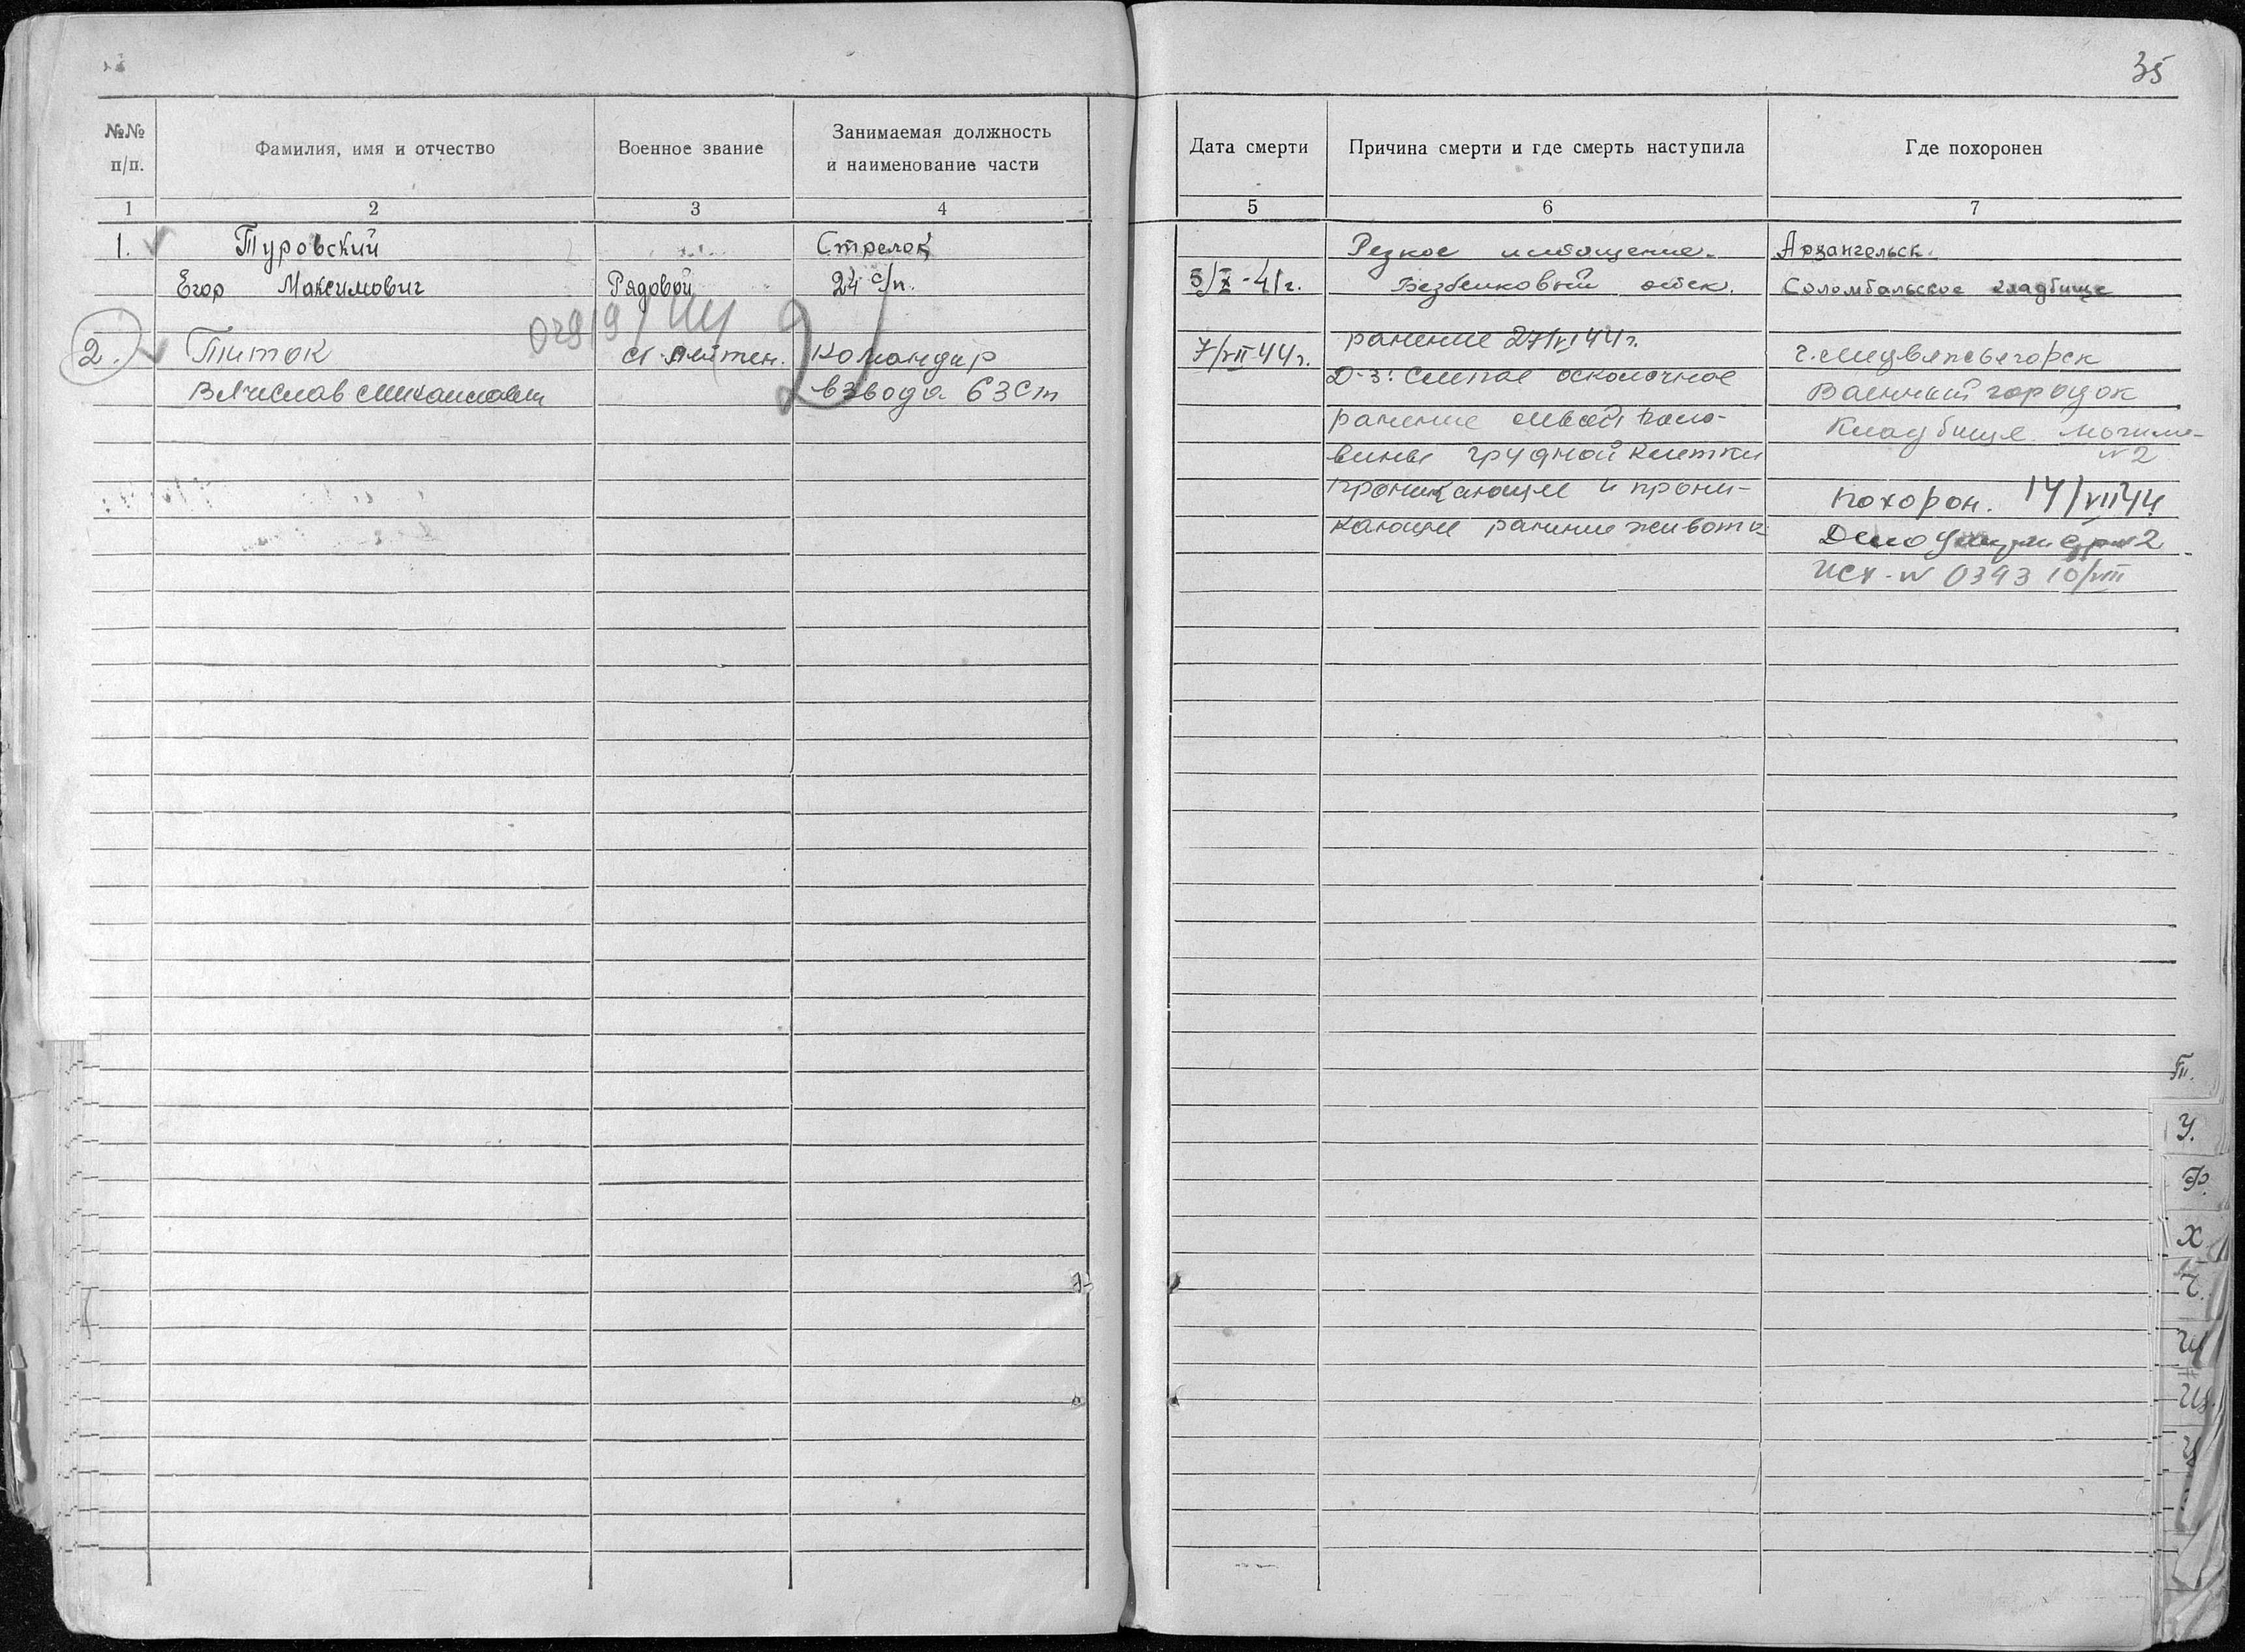 35
№№ п/п.
Фамилия, имя и отчество
Военное звание
Занимаемая должность
и наименование части
Дата смерти
Причина смерти и где смерть наступила
Где похоронен
1 2 3 4 5 6 7
1. Туровский Стрелок Резкое истощение. Архангельск.
Егор Максимович Рядовой 24 с/п. 5/X-41г. Безбелковый отек. Соломбальское кладбище
02919/44 2
2. Титок мл. лейтен. Командир 7/VII-44г. ранение 27/VI 44г. г. Медвежьегорск
Вячеслав Михаилович взвода 63 Д-з: Слепое осколочное Военный городок
ранение левой поло- Кладбище могила
вины грудной клетки № 2
проникающее и прони- похорон. 14/VII 44
кающее ранение живота 2
исх-№ 0343 10/VIII
У.
Ф.
Х
Ч.
Ш